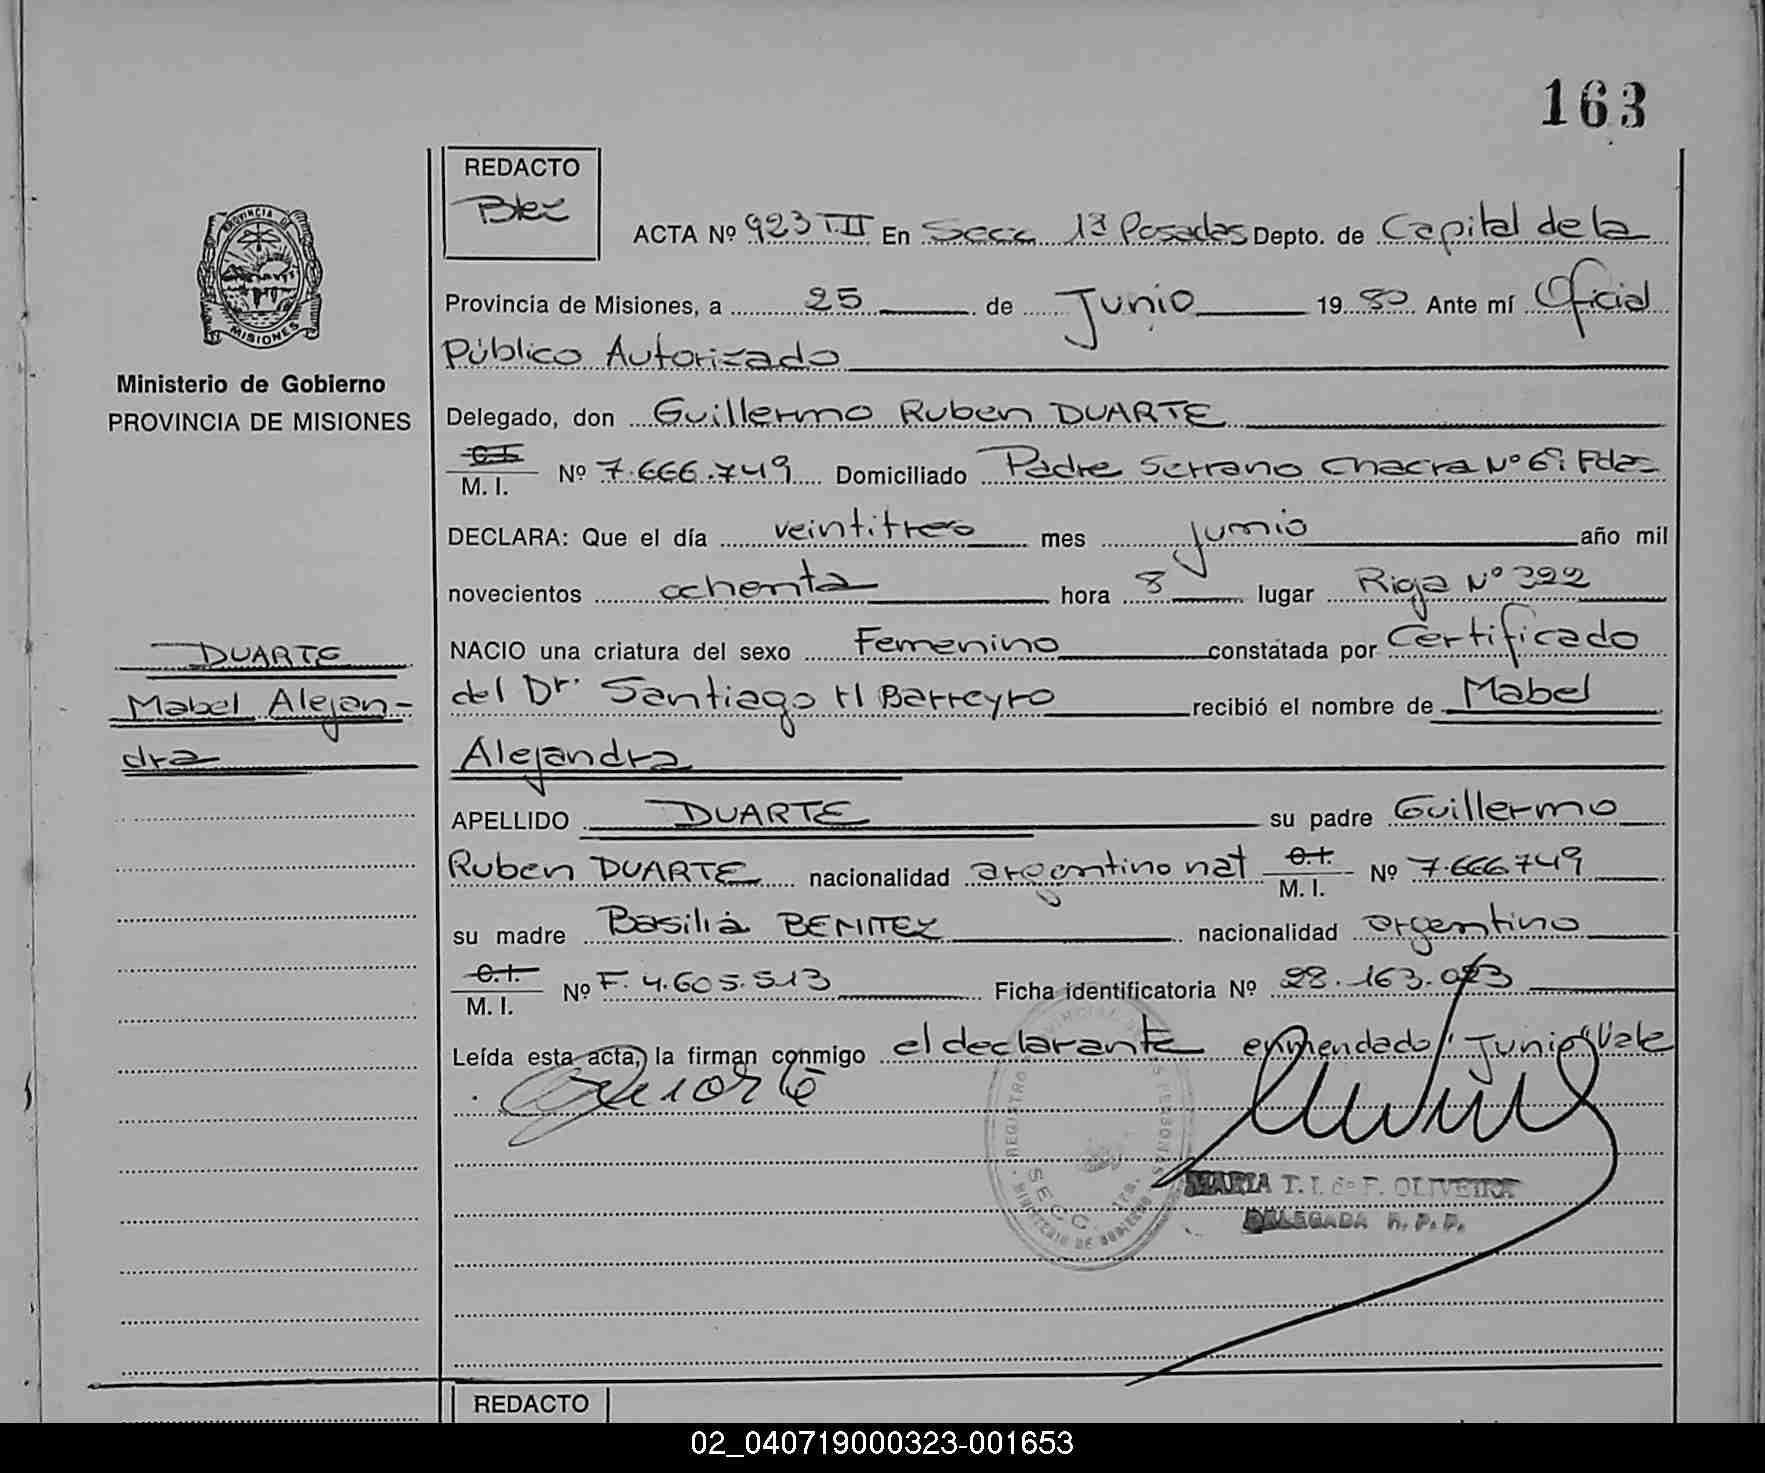 163
REDACTO
ACTA Nº 923 T II En Secc. 1ª Posadas Depto. de Capital de la
Provincia de Misiones, a 25 de Junio 19 80 Ante mí Oficial
Público Autorizado
Ministerio de Gobierno
PROVINCIA DE MISIONES
Delegado, don Guillermo Ruben DUARTE
C.I.
M. I. Nº 7.666.749 Domiciliado Padre Serrano Chacra Nº 6; Pdas
DECLARA: Que el día veintitres mes junio año mil
novecientos ochenta hora 8 lugar Rioja Nº 322
NACIO una criatura del sexo Femenino constatada por Certificado
del Dr. Santiago H Barreyro recibió el nombre de Mabel
Alejandra
DUARTE
Mabel Alejan-
dra
APELLIDO DUARTE su padre Guillermo
Ruben DUARTE nacionalidad argentino nat C.I.
M. I. Nº 7.666.749
su madre Basilia BENITEZ nacionalidad argentino
C.I.
M. I. Nº F. 4.605.513 Ficha identificatoria Nº 28.163.023
Leída esta acta, la firman conmigo el declarante enmendado "Junio" Vale
Duarte
MARIA T. I. de F. OLIVEIRA
DELEGADA R. P. P.
REDACTO
02_040719000323-001653